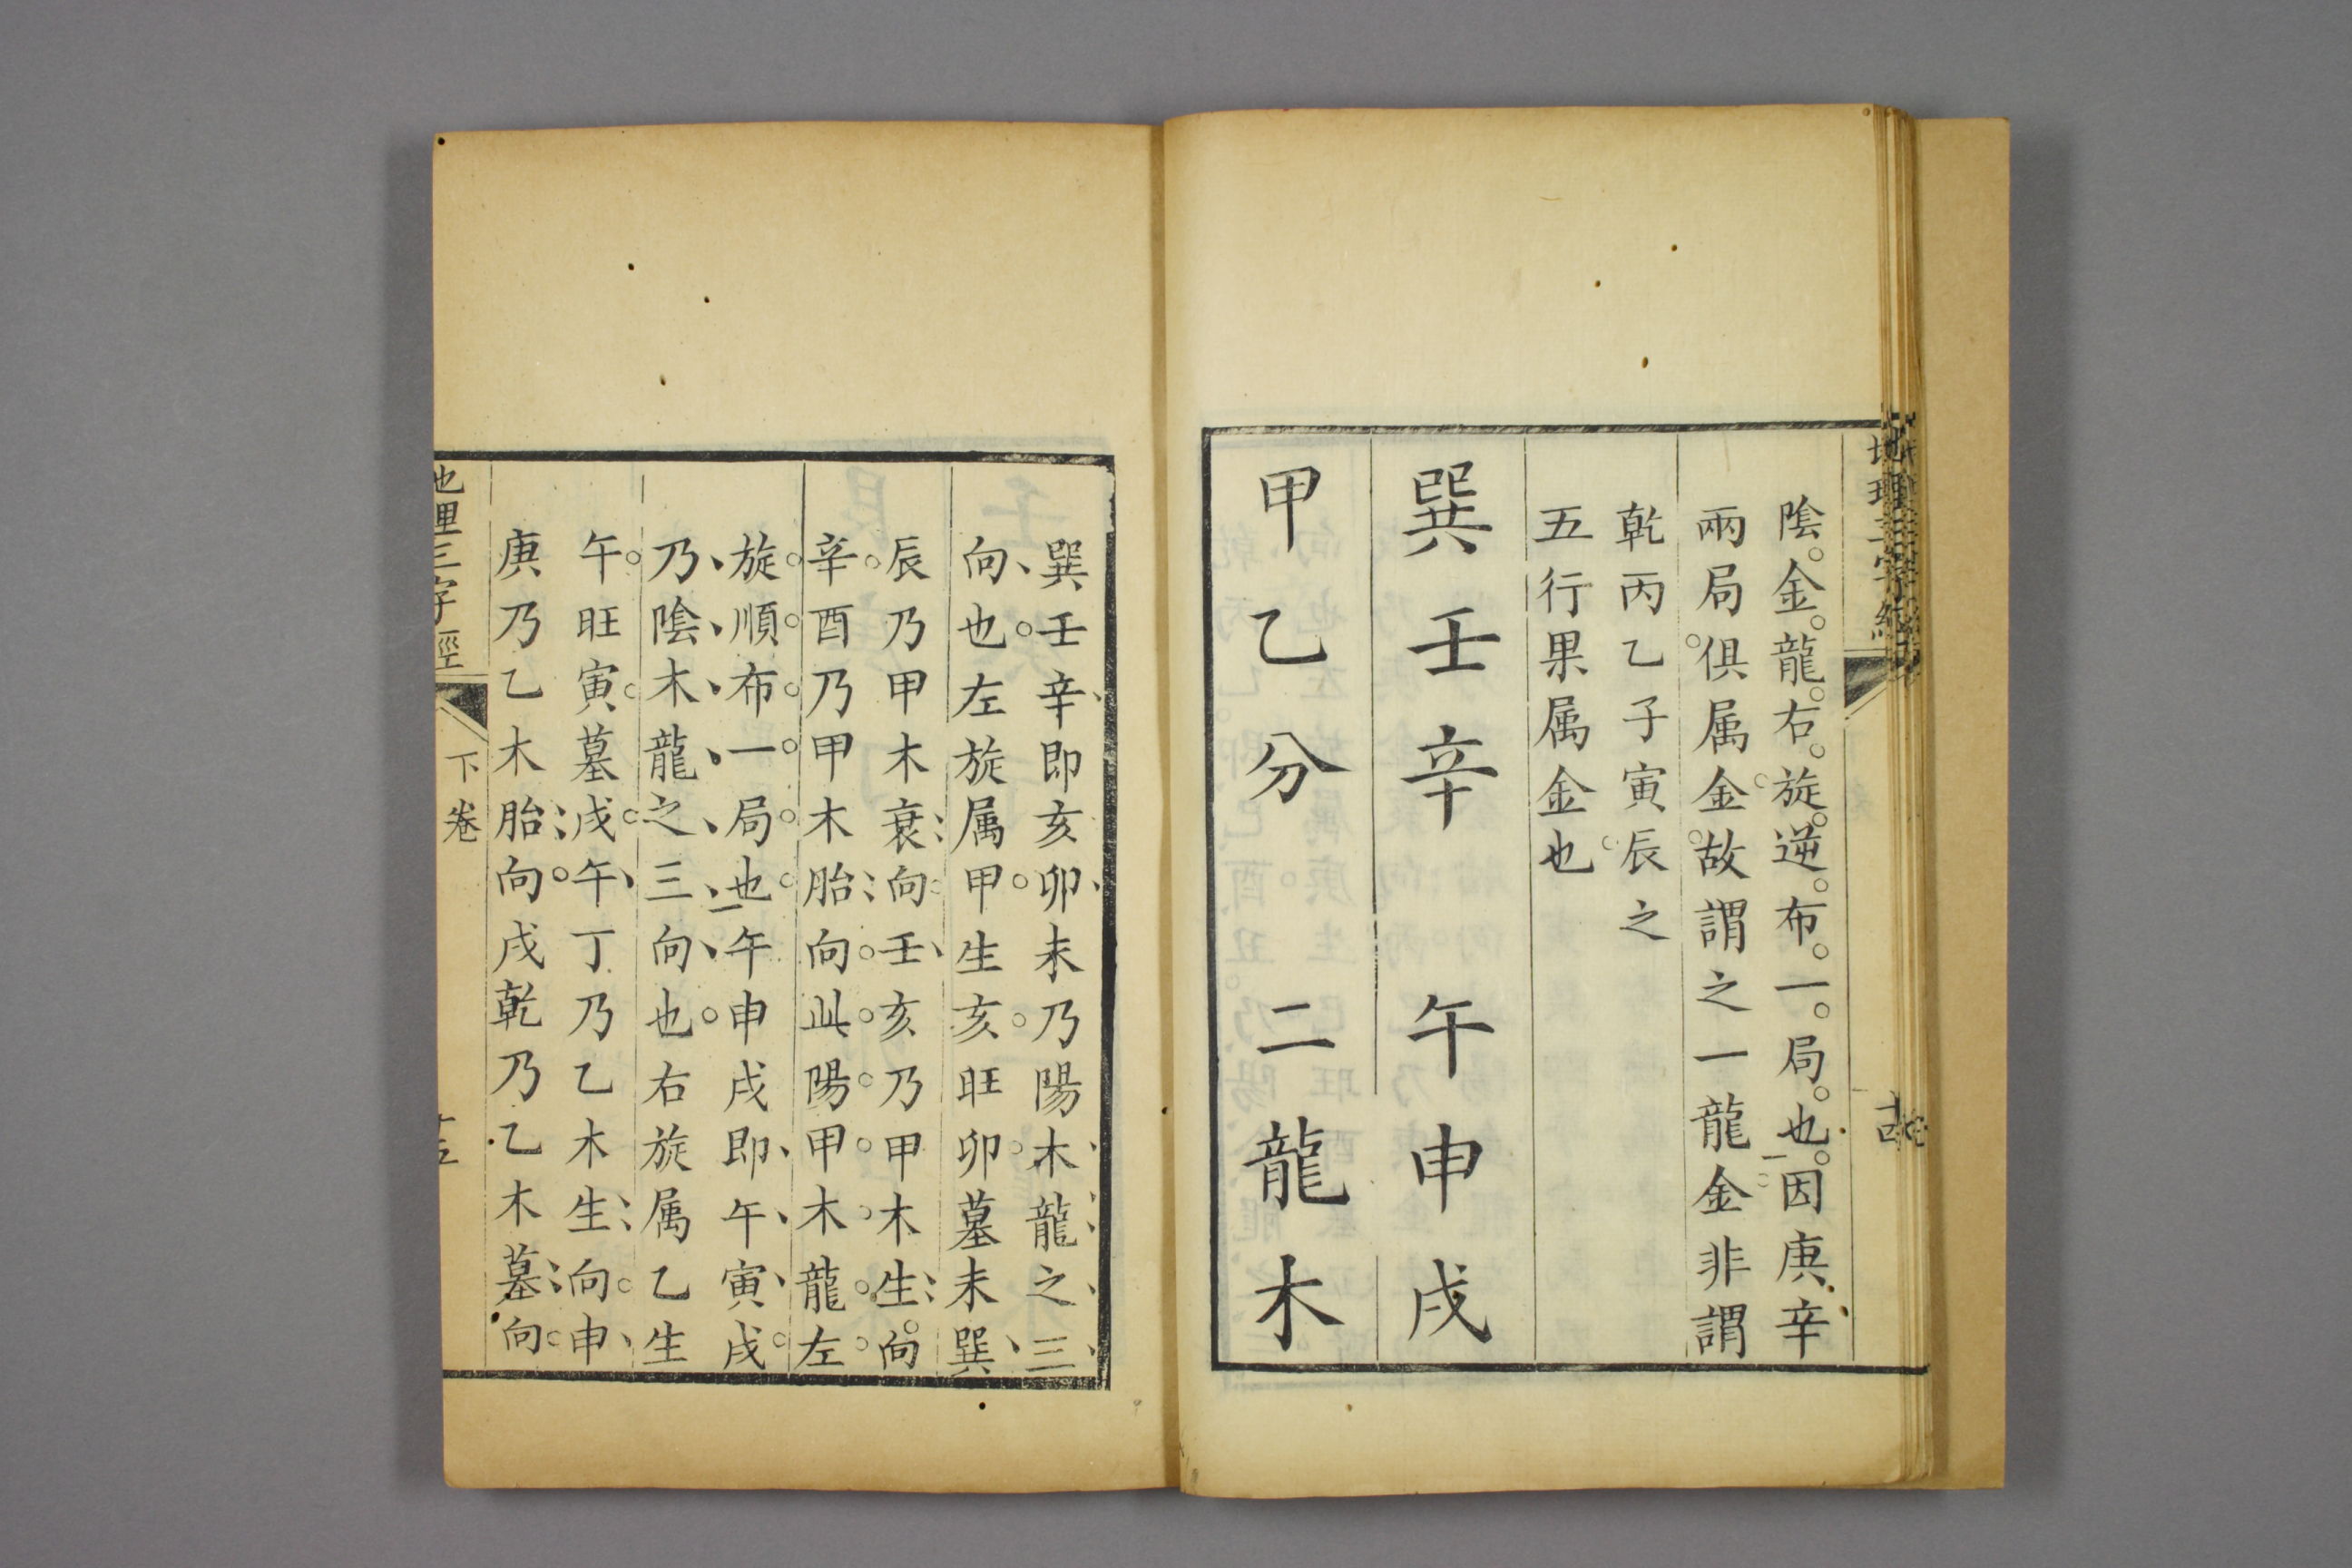 地理三字經
陰金龍右旋逆布一局也因庚辛
兩局俱属金故謂之一龍金非謂
乾丙乙子寅辰之
五行果属金也
巽壬辛午申戌
甲乙分二龍木
巽壬辛即亥卯未乃陽木龍之三
向也左旋属甲生亥旺卯墓未巽
辰乃甲木衰向壬亥乃甲木生向
辛酉乃甲木胎向此陽甲木龍左
旋順布一局也午申戌即午寅戌
乃陰木龍之三向也右旋属乙生
午旺寅墓戌午丁乃乙木生向申
庚乃乙木胎向戌乾乃乙木墓向
地理三字經
下卷